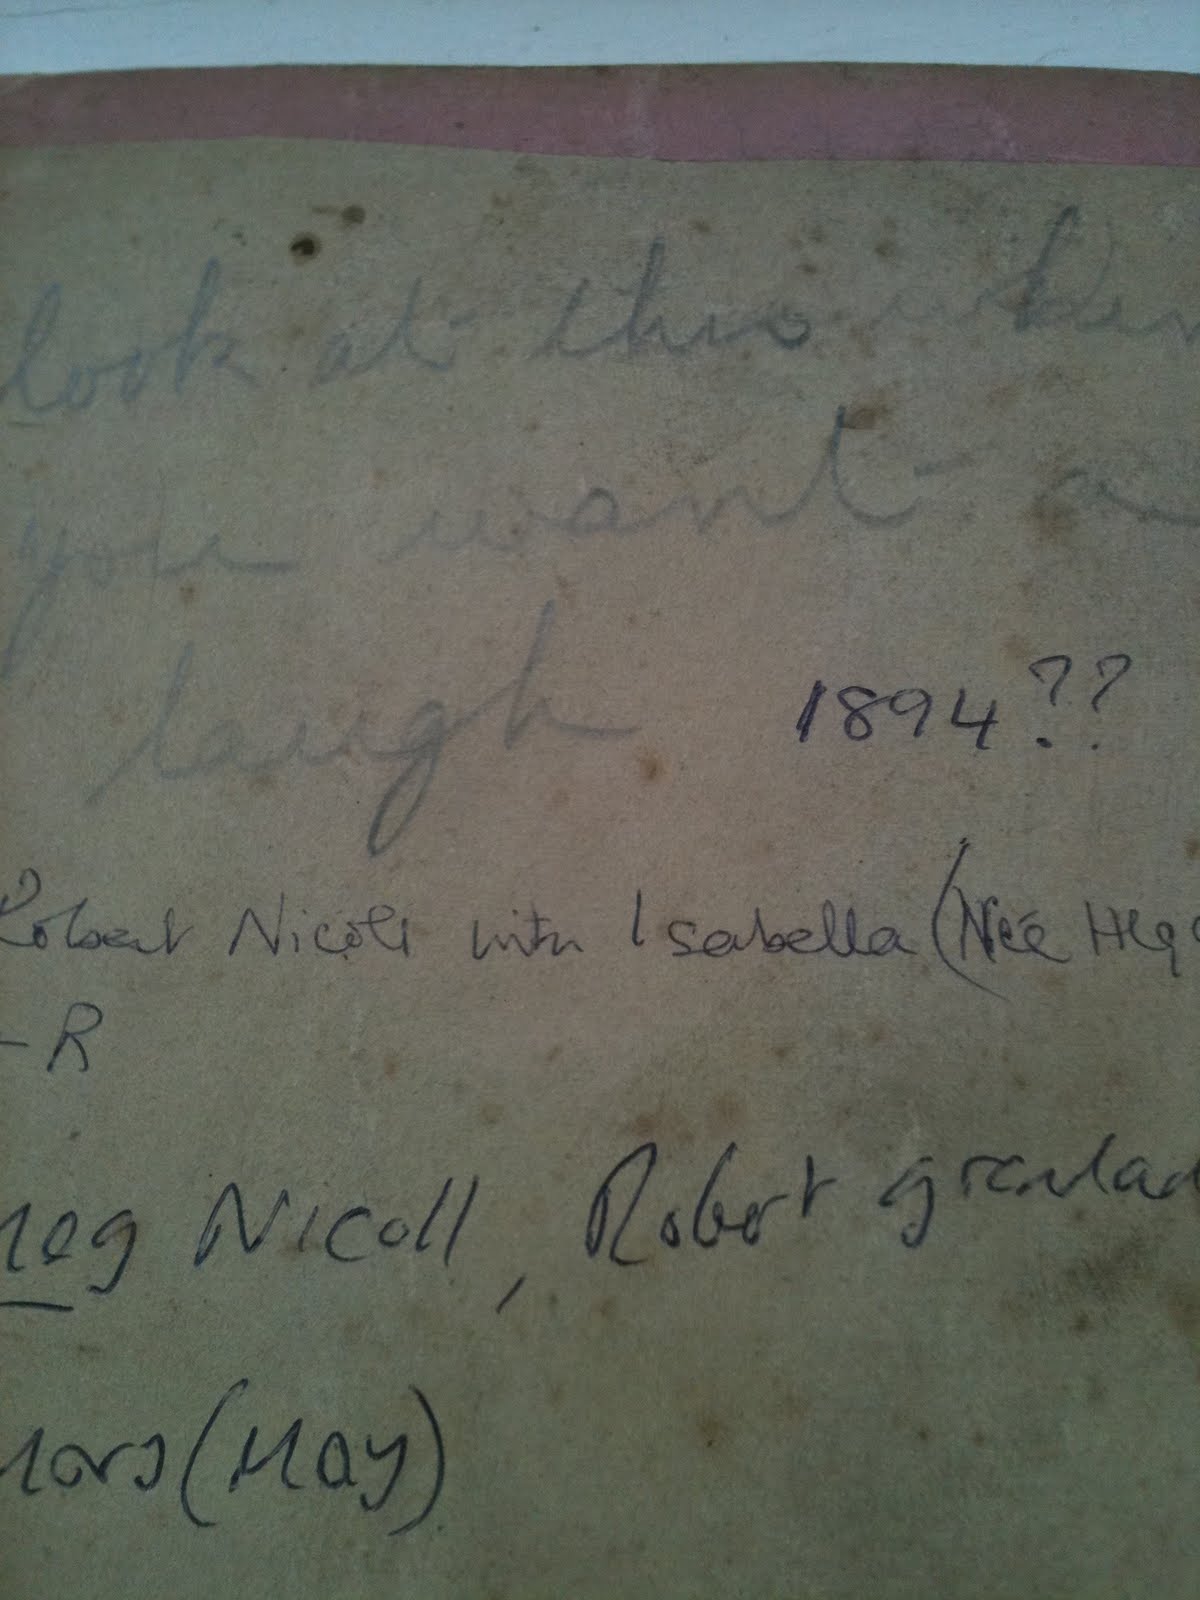 look at this when
you want a
laugh
1894??
Robert Nicoll with Isabella (Neé
- R
Meg Nicoll, Robert
(May)